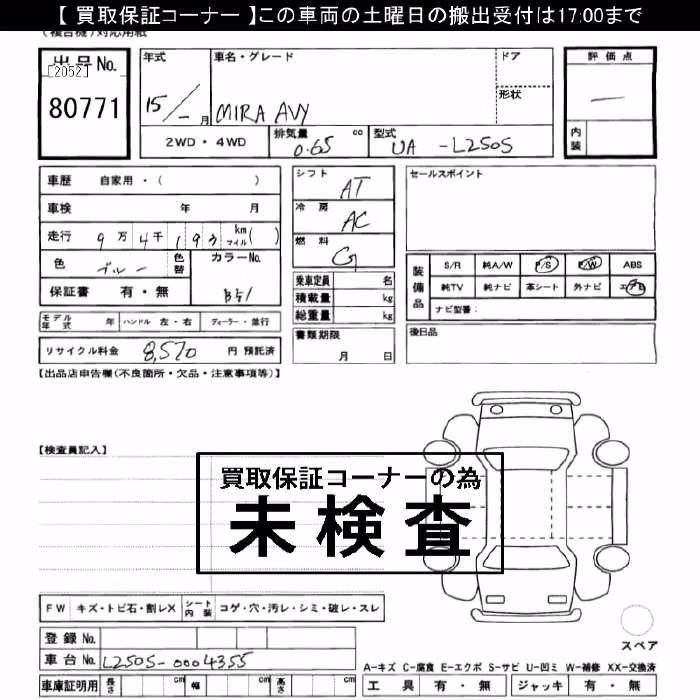 【 買取保証コーナー 】この車両の土曜日の搬出受付は17:00まで
(複合機)対応用紙
出品No.
[2052]
80771
年式
15/-月
車名・グレード
MIRA AVY
ドア
形状
評価点
—
内装
2WD・4WD
排気量
0.65
cc
型式
UA -L250S
車歴 自家用・( )
車検 年 月
走行 9万4千193 km マイル( )
色 ブルー
色替
カラーNo.
B51
保証書 有・無
シフト
AT
冷房
AC
燃料
G
乗車定員 名
積載量 kg
総重量 kg
セールスポイント
装備品
S/R 純A/W P/S P/W ABS
純TV 純ナビ 革シート 外ナビ エアB
ナビ型番:
モデル年式 年 ハンドル 左・右 ディーラー・並行
リサイクル料金 8,570 円 預託済
書類期限
月 日
後日品
【出品店申告欄(不良箇所・欠品・注意事項等)】
【検査員記入】
買取保証コーナーの為
未検査
FW キズ・トビ石・割レX シート内装 コゲ・穴・汚レ・シミ・破レ・スレ
登録No.
車台No. L250S-0004355
車庫証明用 長さ cm 幅 cm 高さ cm
スペア
A-キズ C-腐食 E-エクボ S-サビ U-凹ミ W-補修 XX-交換済
工具 有・無 ジャッキ 有・無